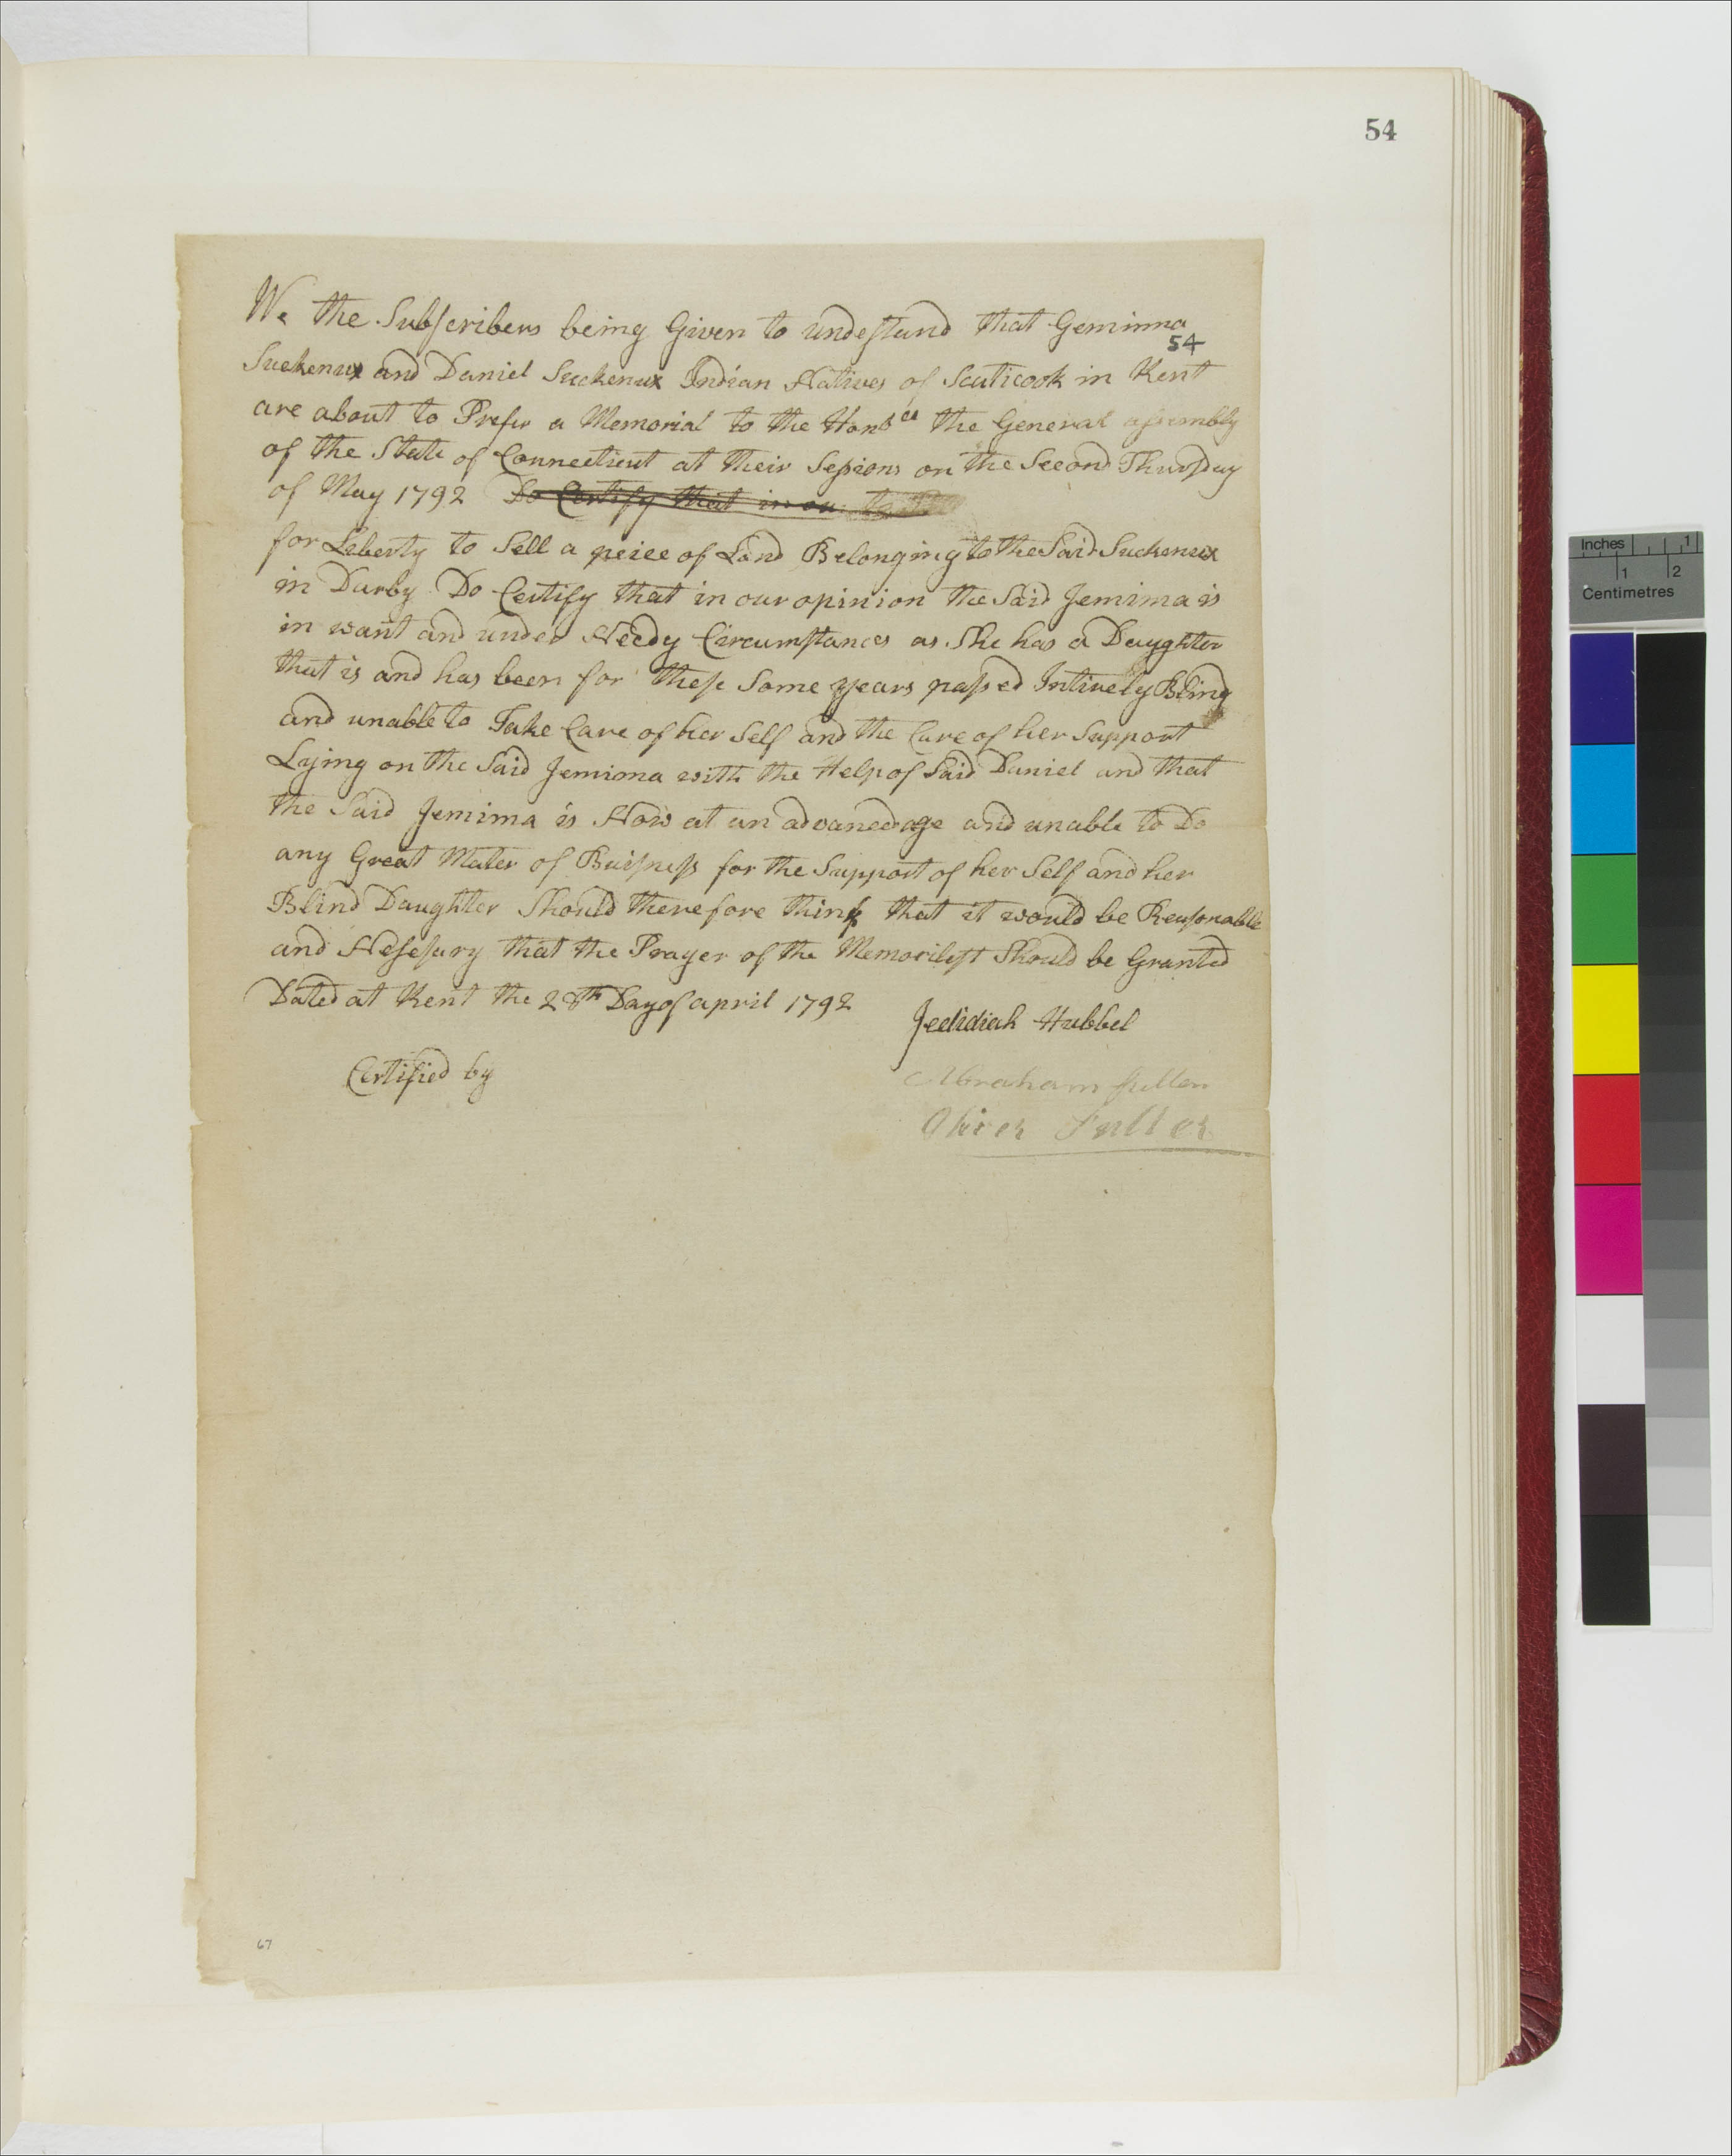 54
We the Subscribers being Given to undestand that Geminna
54
Suckenux and Daniel Suckenux Indian Natives of Scuticook in Kent
are about to Prefer a Memorial to the Honb le the General assembly
of the State of Connecticut at their Sessions on the Second Thursday
of May 1792 Do Certify that in our
for Leberty to Sell a peice of Land Belonging to the Said Suckenux
in Darby Do Certify that in our opinion the Said Jemima is
in want and under Needy Circumstances as She has a Dayghter
that is and has been for these Some years passed Intirely Blind
and unable to Take Care of her Self and the Care of her Support
Lying on the Said Jemima with the Help of Said Daniel and that
the Said Jemima is Now at an advanced age and unable to Do
any Great Mater of Buisness for the Support of her Self and her
Blind Daughter Should therefore think that it would be Reasonable
and Nesesary that the Prayer of the Memorilest Should be Granted
Dated at Kent the 28th Day of april 1792
Jedidiah Hubbel
Certified by
Abraham fuller
Oliver Fuller
67
Inches 1
1 2
Centimetres